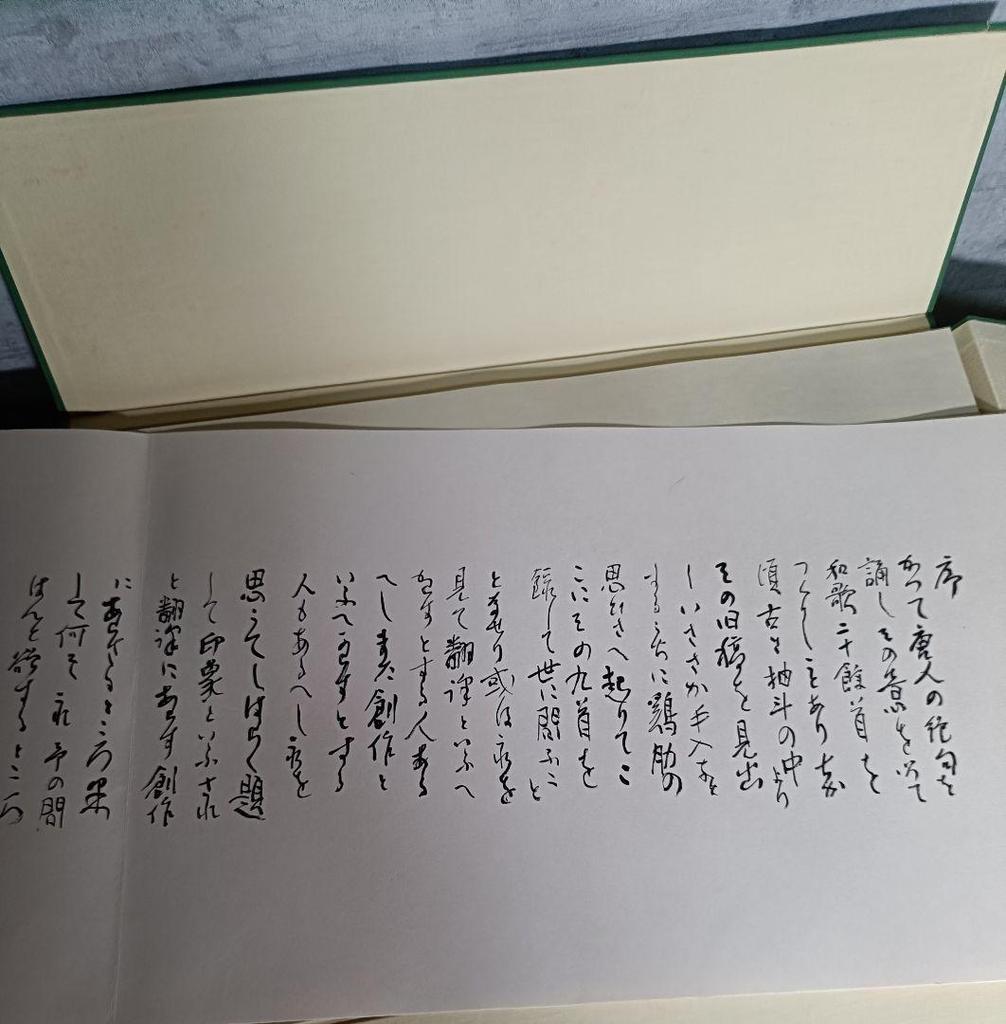 序
かつて唐人の絶句を
誦しその意を以て
和歌二十餘首を
つくりしことあり
頃古き抽斗の中より
その旧稿を見出
しいささか手入を
するうちに鶏肋の
思ひさへ起りてこ
こにその九首を
録して世に問ふこと
となせり或は之を
見て翻譯といふへ
からすとする人ある
へしまた創作と
いふへからすとする
人もあるへし之を
思うてしはらく題
して印象といふされ
と翻譯にあらす創作
にあらさるところ果
して何そ これ予の問
はんと欲するところ